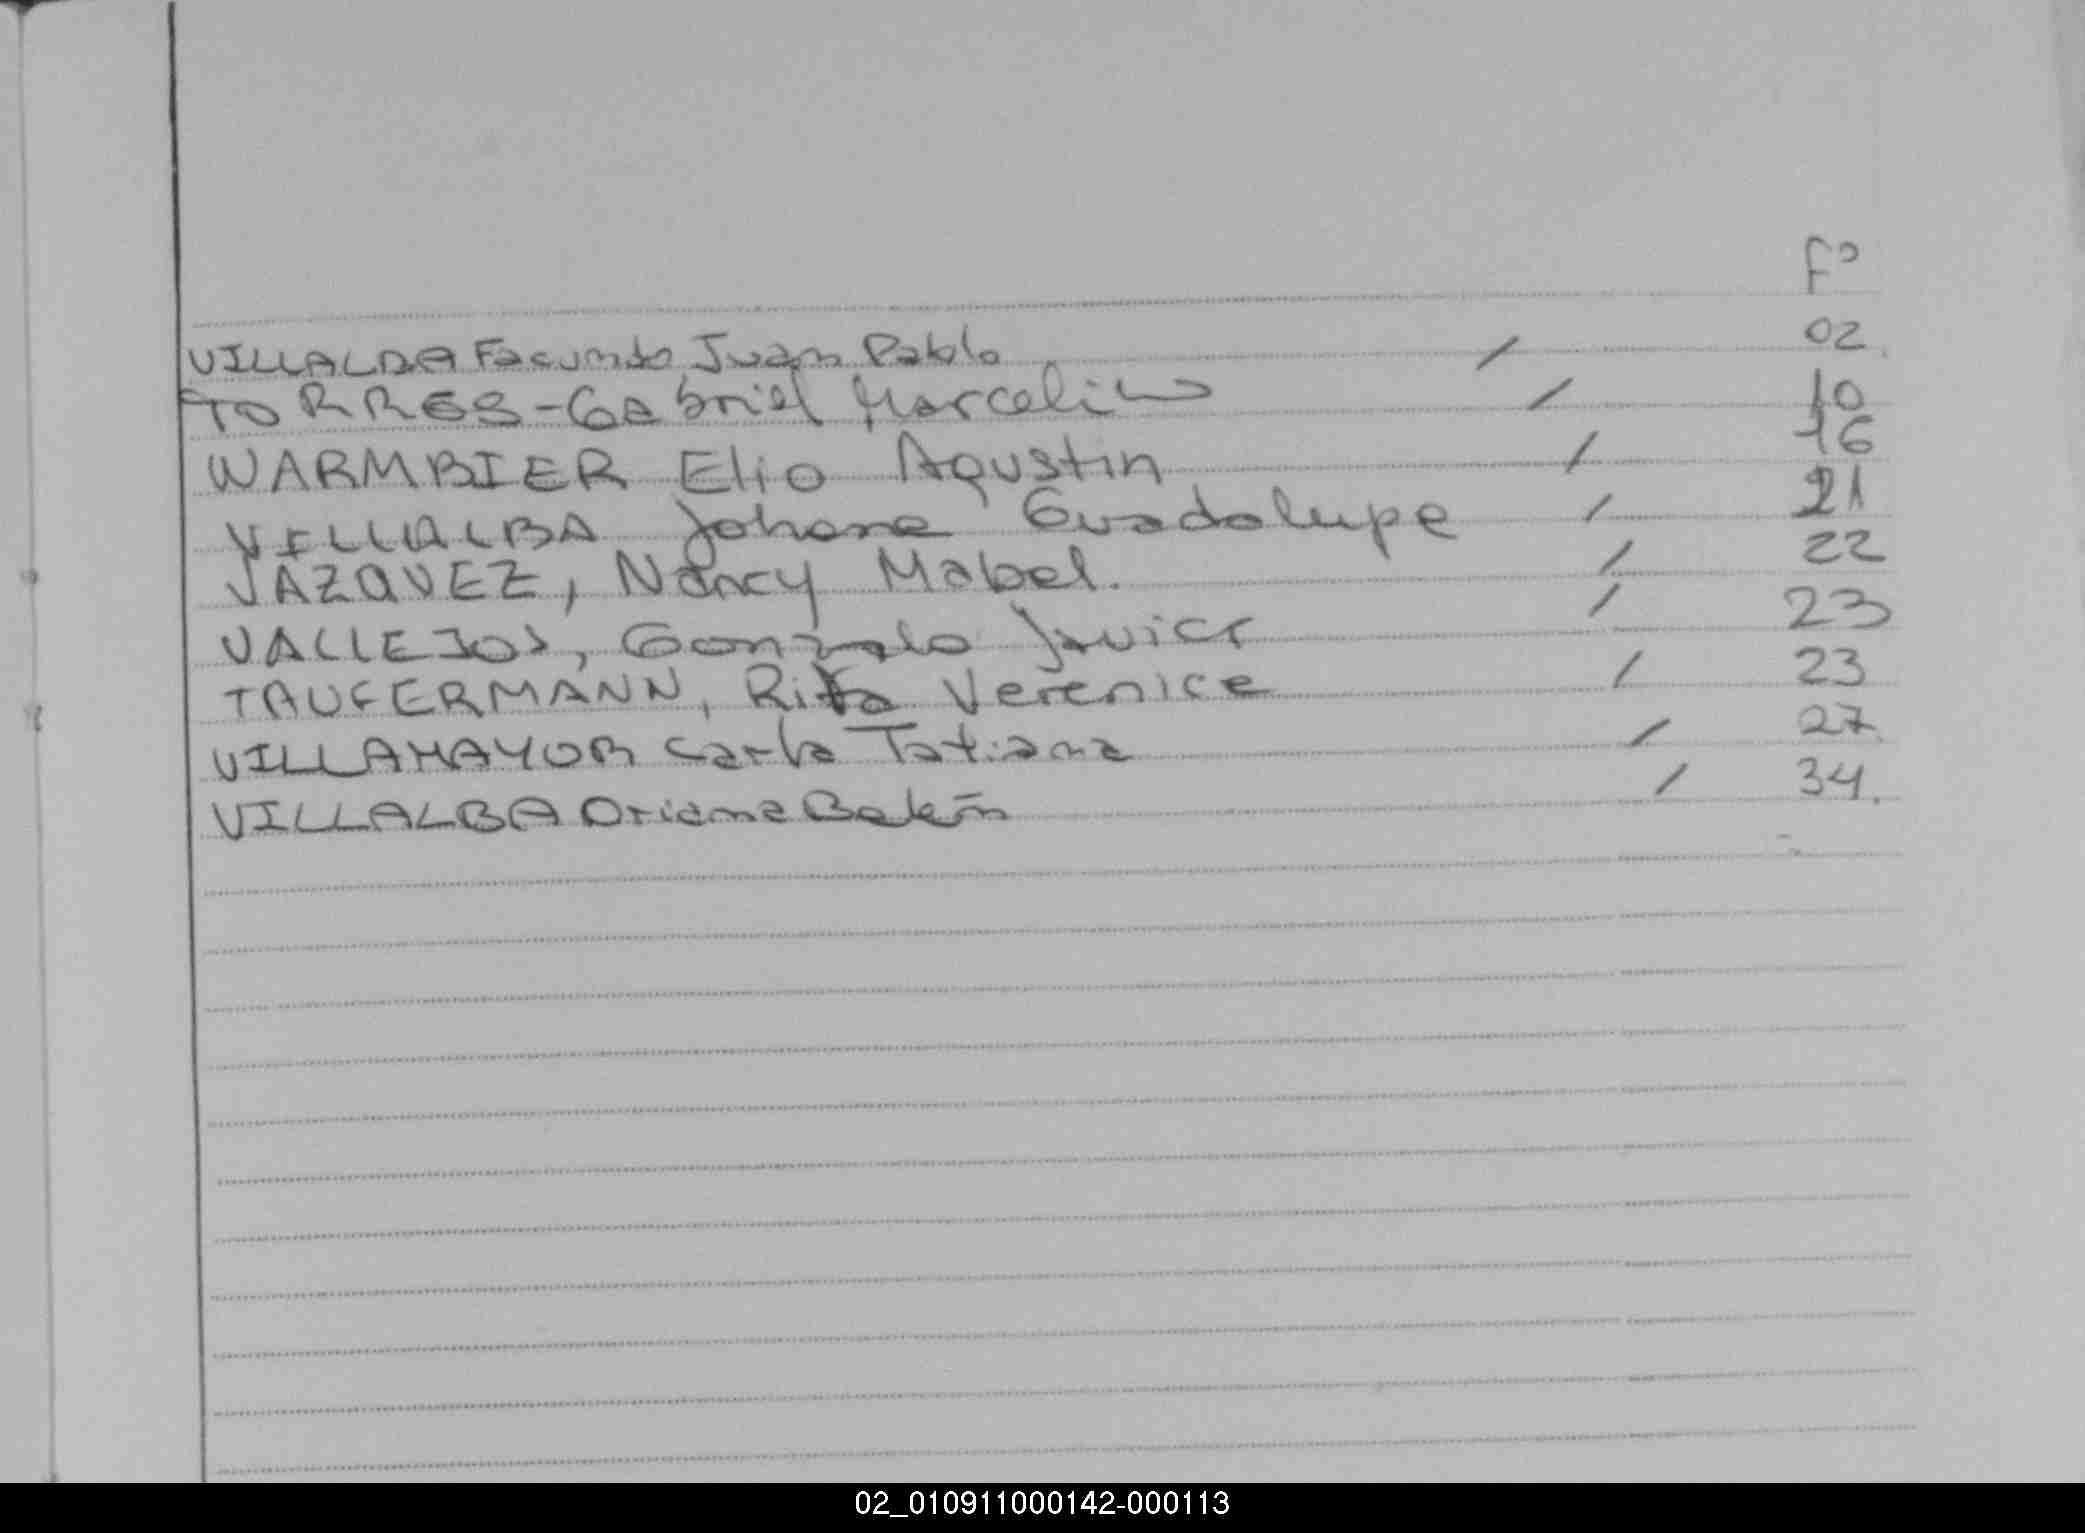 Fº
VILLALBA Facundo Juan Pablo / 02
TORRES-Gabriel Marcelino / 10
WARMBIER Elio Agustin / 16
VILLALBA Johana Guadalupe / 21
VAZQUEZ, Nancy Mabel. / 22
VALLEJOS, Gonzalo Javier / 23
TAUFERMANN, Rita Verenice / 23
VILLAMAYOR Carla Tatiana / 27
VILLALBA Oriana Belén / 34.
02_010911000142-000113